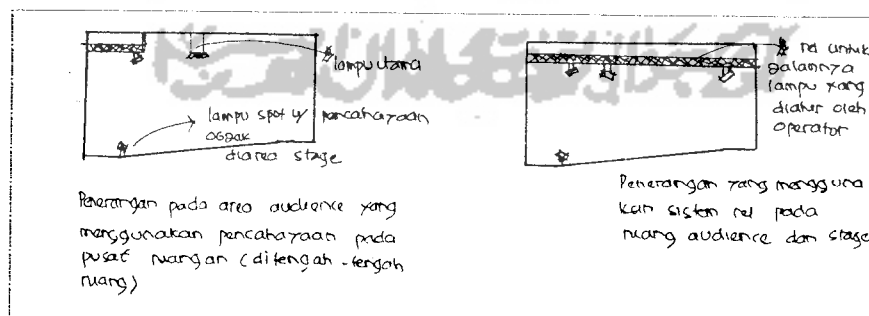 lampu utama
lampu spot u/ pencahayaan
objek
diarea stage
Penerangan pada area audience yang
menggunakan pencahayaan pada
pusat ruangan (ditengah-tengah
ruang)
rel untuk
jalannya
lampu yang
diatur oleh
operator
Penerangan yang mengguna
kan sistem rel pada
ruang audience dan stage